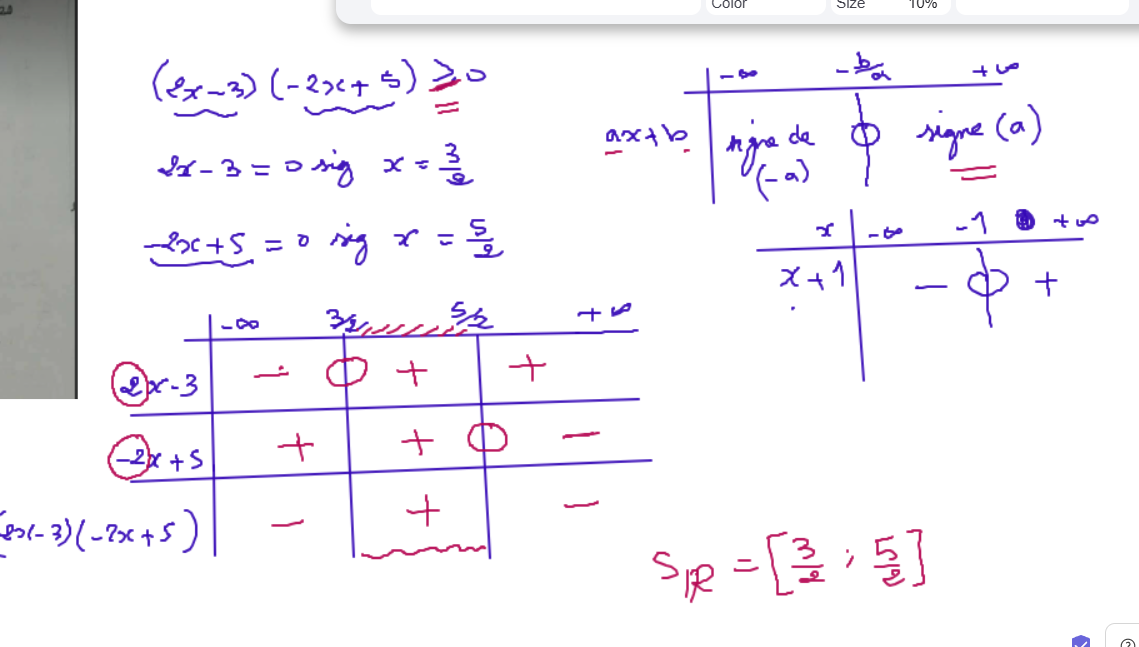 Color Size 10%
(2x-3)(-2x+5) ≥ 0
2x-3 = 0 sig x = 3/2
-2x+5 = 0 sig x = 5/2
-∞ 3/2 5/2 +∞
2x-3 - 0 + + 
-2x+5 + + 0 -
(2x-3)(-2x+5) - + -
-∞ -b/a +∞
ax+b signe de (-a) 0 signe (a)
x -∞ -1 +∞
x+1 - 0 +
S_IR = [3/2 ; 5/2]